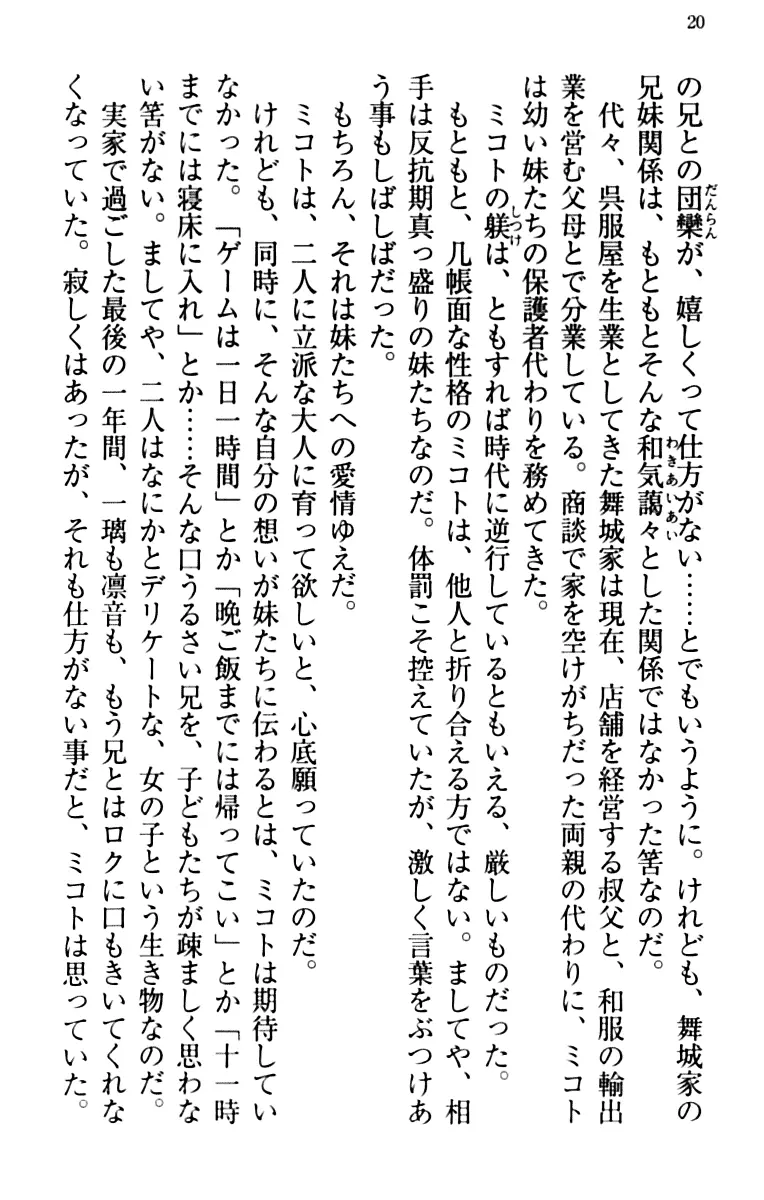 20
の兄との団欒が、嬉しくって仕方がない……とでもいうように。けれども、舞城家の
兄妹関係は、もともとそんな和気藹々とした関係ではなかった筈なのだ。
代々、呉服屋を生業としてきた舞城家は現在、店舗を経営する叔父と、和服の輸出
業を営む父母とで分業している。商談で家を空けがちだった両親の代わりに、ミコト
は幼い妹たちの保護者代わりを務めてきた。
ミコトの躾は、ともすれば時代に逆行しているともいえる、厳しいものだった。
もともと、几帳面な性格のミコトは、他人と折り合える方ではない。ましてや、相
手は反抗期真っ盛りの妹たちなのだ。体罰こそ控えていたが、激しく言葉をぶつけあ
う事もしばしばだった。
もちろん、それは妹たちへの愛情ゆえだ。
ミコトは、二人に立派な大人に育って欲しいと、心底願っていたのだ。
けれども、同時に、そんな自分の想いが妹たちに伝わるとは、ミコトは期待してい
なかった。「ゲームは一日一時間」とか「晩ご飯までには帰ってこい」とか「十一時
までには寝床に入れ」とか……そんな口うるさい兄を、子どもたちが疎ましく思わな
い筈がない。ましてや、二人はなにかとデリケートな、女の子という生き物なのだ。
実家で過ごした最後の一年間、一璃も凛音も、もう兄とはロクに口もきいてくれな
くなっていた。寂しくはあったが、それも仕方がない事だと、ミコトは思っていた。
だんらん
わきあいあい
しつけ